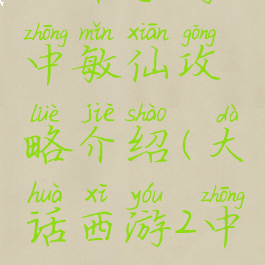 zhōng mǐn xiān gōng
中敏仙攻
lüè jiè shào dà
略介绍(大
huà xī yóu zhōng
话西游2中